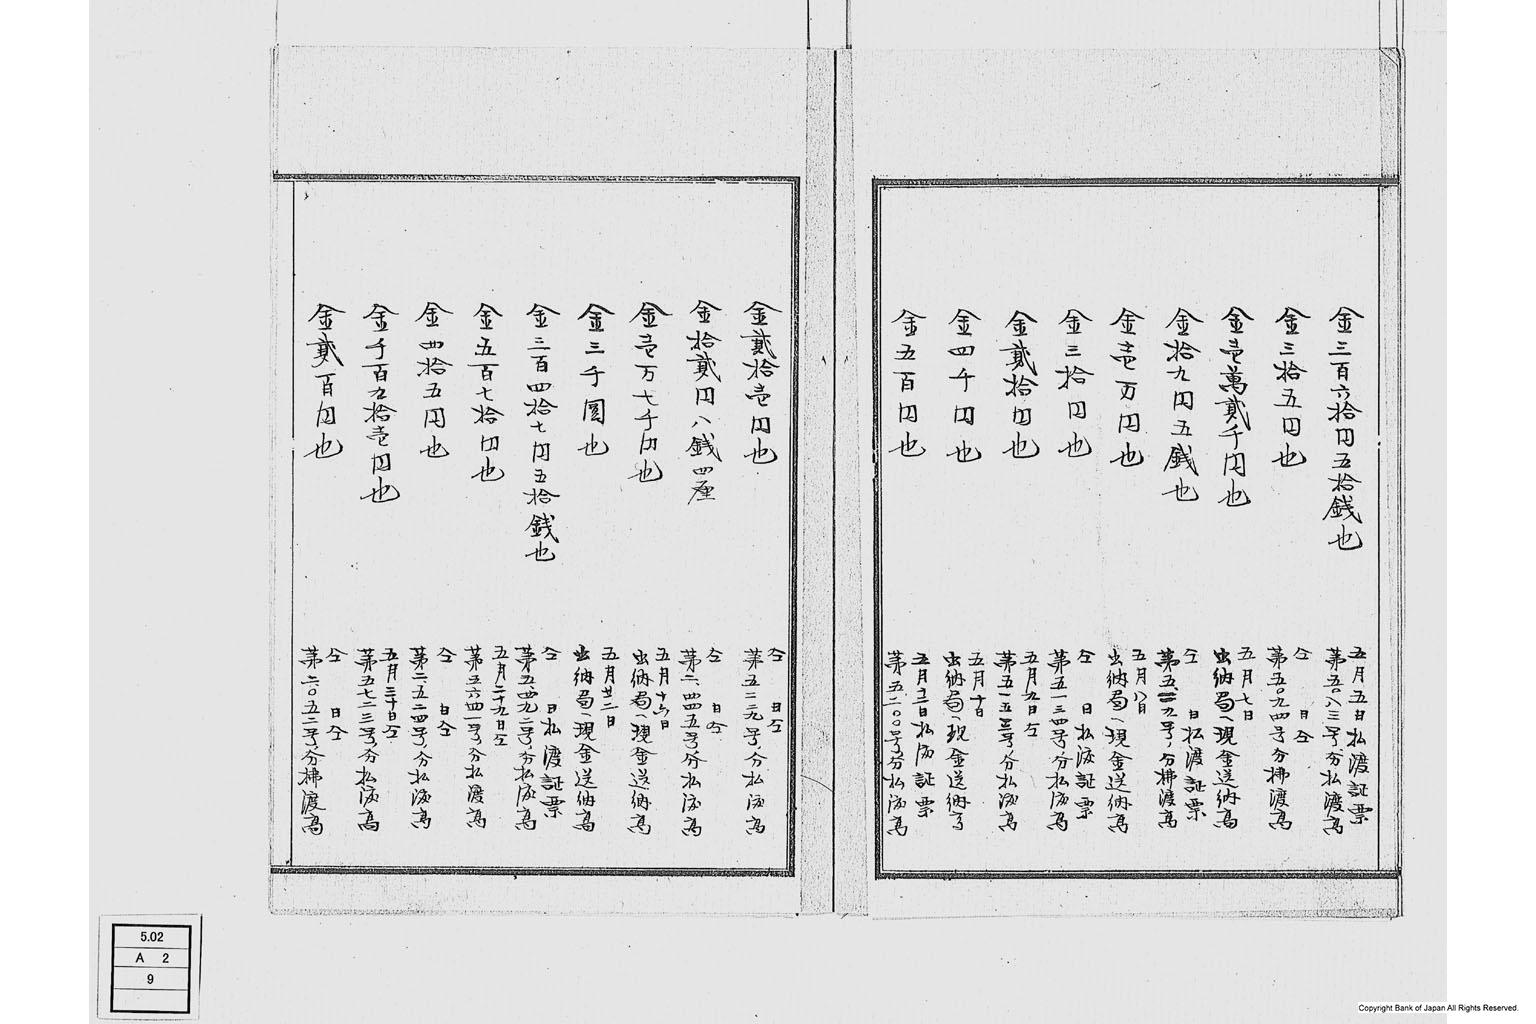 金三百六拾円五拾銭也
五月五日払渡証票
第五〇八三号分払渡高
金三拾五円也
仝 日仝
第五〇九四号分拂渡高
金壱萬貳千円也
五月七日
出納局へ現金送納高
金拾九円五銭也
仝 日払渡証票
分拂渡高
金壱万円也
五月八日
出納局へ現金送納高
金三拾円也
仝 日払渡証票
第五一三四号分払渡高
金貳拾円也
五月九日仝
第五一五三号分払渡高
金四千円也
五月十日
出納局へ現金送納高
金五百円也
五月十二日払渡証票
第五二〇〇号分払渡高
金貳拾壱円也
仝 日仝
第五二二九号分払渡高
金拾貳円八銭四厘
仝 日仝
第二四四五号分払渡高
金壱万七千円也
五月十六日
出納局へ現金送納高
金三千圓也
五月廿二日
出納局へ現金送納高
金三百四拾七円五拾銭也
仝 日払渡証票
第五四九二号分払渡高
金五百七拾円也
五月二十九日仝
第五六四一号分払渡高
金四拾五円也
仝 日仝
第二五二四号分払渡高
金千百九拾壱円也
五月三十日仝
第五七二三号分払渡高
金貳百円也
仝 日仝
第二〇五二号分拂渡高
5.02
A 2
9
Copyright Bank of Japan All Rights Reserved.